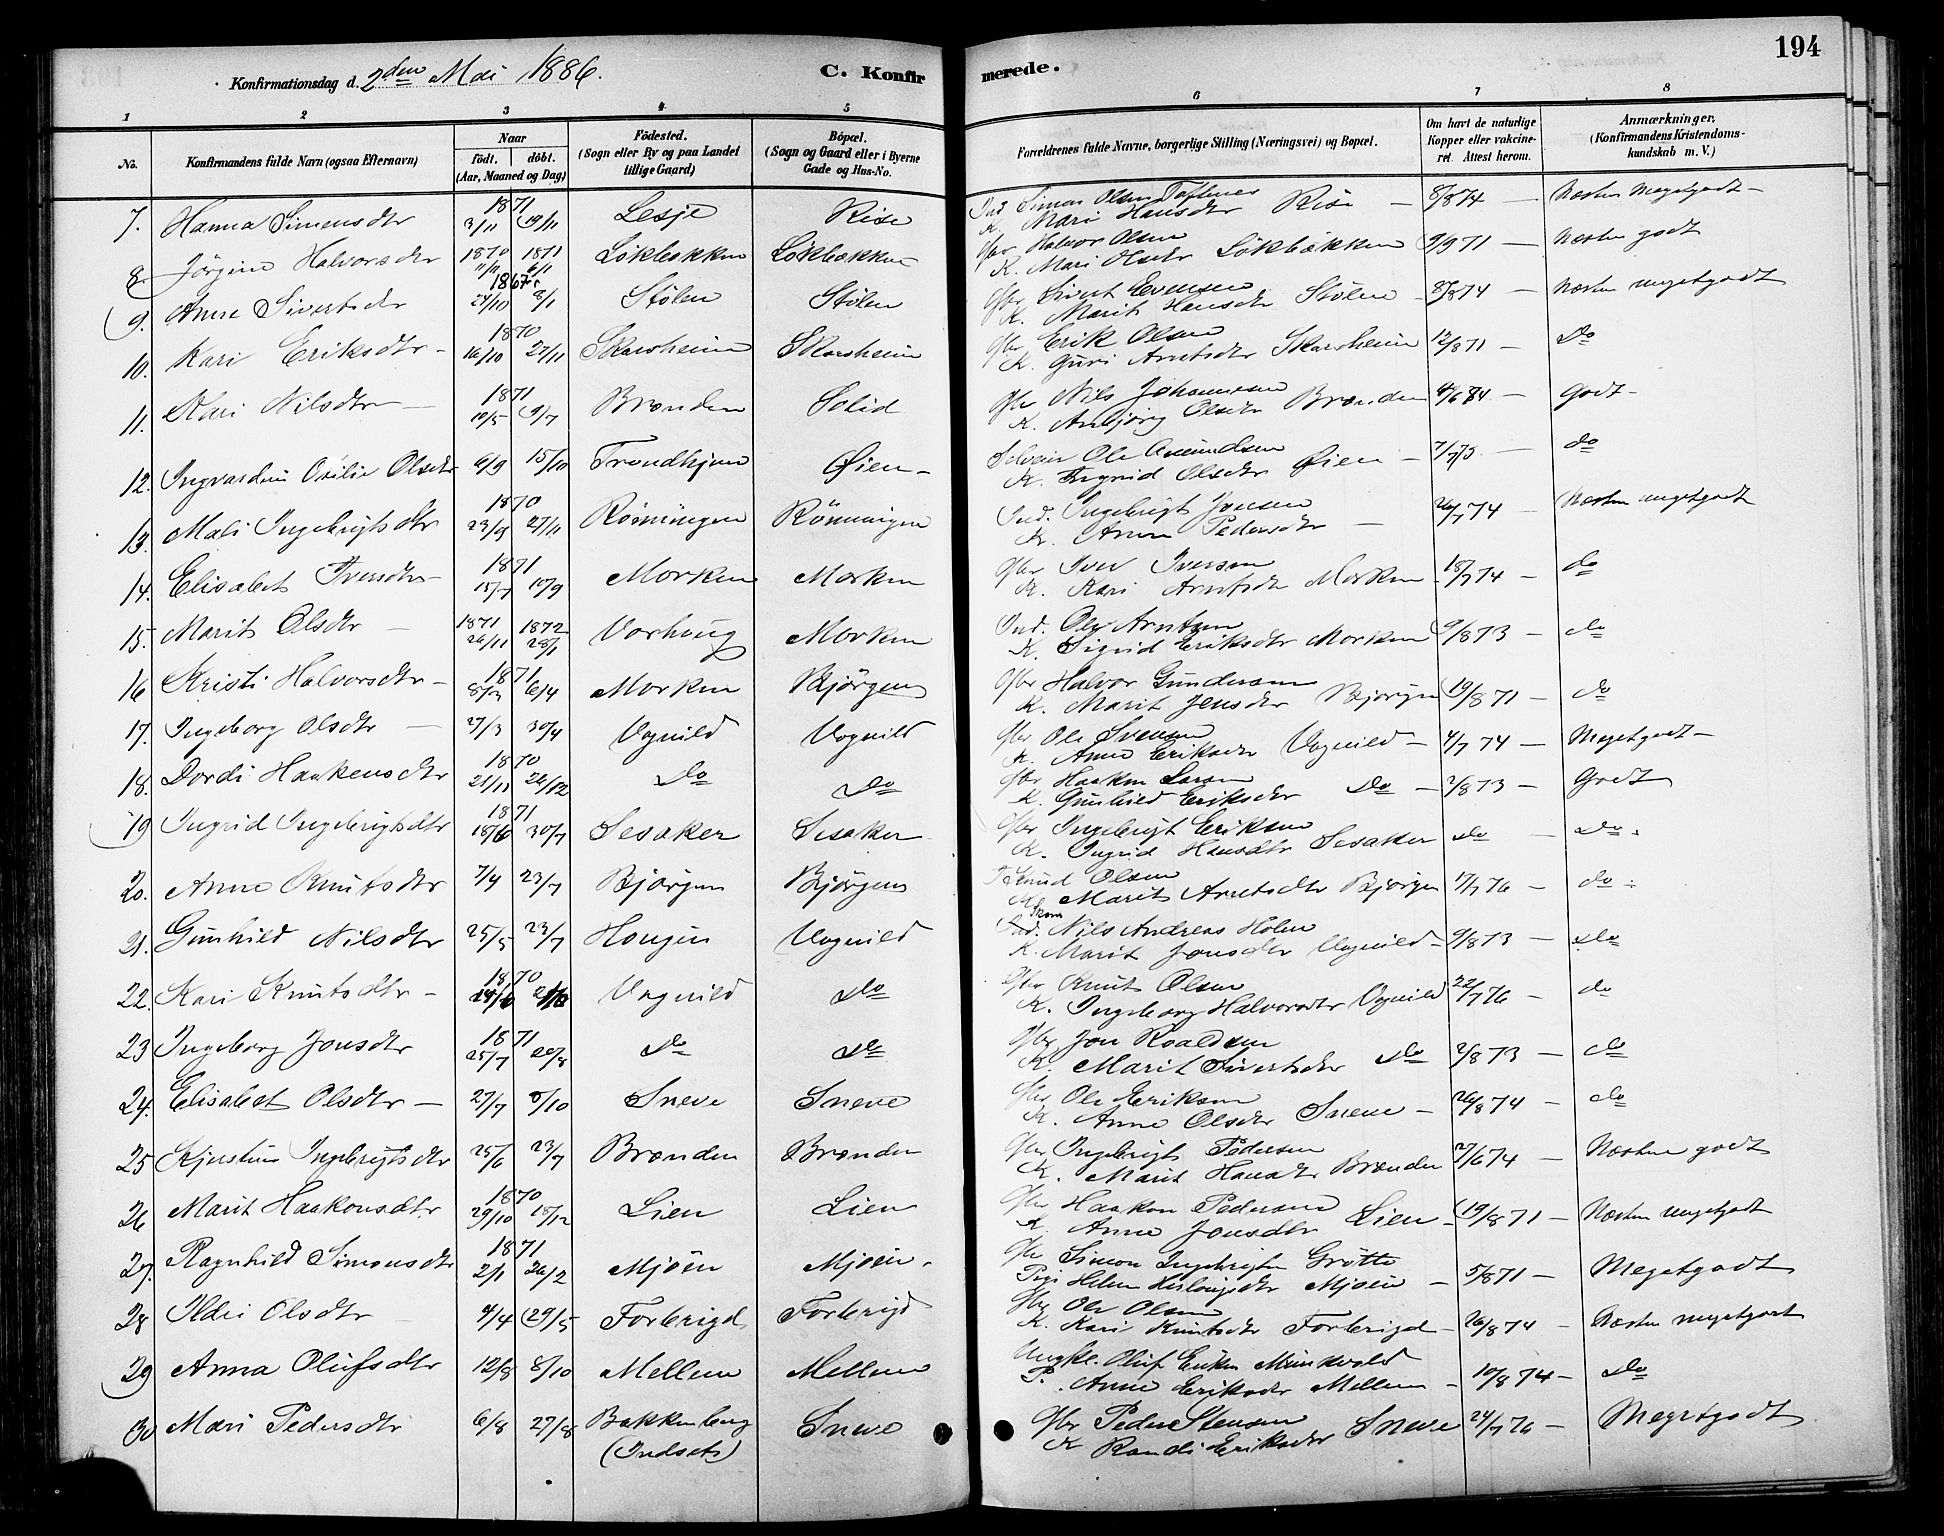 194
Konfirmationsdag d. 2den Mai 1886. C. Konfirmerede.
1 2 3 4 5 6 7 8
No. Konfirmandens fulde Navn (ogsaa Efternavn) Naar födt. döbt. (Aar, Maaned og Dag) Födested. (Sogn eller By og paa Landet tillige Gaard) Bópæl. (Sogn og Gaard eller i Byerne Gade og Hus-No. Forældrenes fulde Navne, borgerlige Stilling (Næringsvei) og Bopæl. Om havt de naturlige Kopper eller vakcineret. Attest herom. Anmærkninger. (Konfirmandens Kristendomskundskab m. V.)
7. Hanna Simensdtr 1871 3/11 19/11 Lesje Rise Ind Simon Olsen Toftnes K. Mari Hansdtr Rise 8/8 74 — Næsten megetgodt —
8. Jörgine Halvorsdtr 1870 11/11 1871 6/1 Lökbakken Lökbakken Gbr Halvor Olsen K. Mari Olsdtr Lökbakken 9/9 71 — Næsten godt
9. Anne Sivertsdtr 1867 24/10 8/1 Stölen Stölen Gbr Sivert Evensen K. Marit Hansdtr Stölen 8/8 74 — Næsten megetgodt
10. Kari Eriksdtr 1870 16/10 27/11 Skarsheim Skarsheim Gbr Erik Olsen K. Guri Arntsdtr Skarsheim 12/8 71 — Do
11. Kari Nilsdtr 1871 10/5 9/7 Brænden Solid Gbr Nils Johannesen K. Anbjörg Olsdtr Brænden 4/6 84 — Godt —
12. Ingvardine Otilie Olsdtr 6/9 15/10 Trondhjem Øien — Selveier Ole Amundsen K. Ingrid Olsdtr Øien — 7/7 73 — do
13. Mali Ingebrigtsdtr 1870 23/9 27/11 Rönningen Rönningen Ind. Ingebrigt Jonsen K. Anne Pedersdtr — 26/7 74 — Næsten megetgodt
14. Elisabet Iversdtr 1871 15/7 17/9 Morken Morken Gbr Iver Iversen K. Kari Arntsdtr Morken 18/7 74 — do
15. Marit Olsdtr 1871 26/11 1872 28/1 Vorhoug Morken Ind. Ole Arntsen K. Sigrid Eriksdtr Morken 9/8 73 — do
16 Kristi Halvorsdtr 1871 6/4 Morken Björgen Gbr Halvor Gundersen K. Marit Jensdtr Björgen 19/8 71 — do
17. Ingeborg Olsdtr 27/3 30/4 Vognild Vognild Gbr Ole Svensen K. Anne Eriksdtr Vognild — 4/7 74 — Megetgodt —
18. Dordi Haakensdtr 1870 21/11 26/12 Do Do Gbr Haaken Larsen K. Gunhild Eriksdtr Do — 2/8 73 — Godt
19 Ingrid Ingebrigtsdtr 1871 18/6 30/7 Sesaker Sesaker Gbr Ingebrigt Eriksen K. Ingrid Hansdtr Sesaker do — do
20. Anne Knutsdtr 7/4 23/7 Björgen Björgen Knud Olsen Marit Arntsdtr Björgen 17/7 76 — do
21. Gunhild Nilsdtr 25/5 23/7 Hougen Vognild Ind. Skom Nils Andreas Holm K. Marit Jonsdtr Vognild — 9/8 73 — do
22. Kari Knutsdtr — 1870 Vognild Do Gbr Knut Olsen K. Ingeborg Halvorsdtr Vognild 22/7 76 — do
23 Ingeborg Jonsdtr 1871 25/7 20/8 Do Do Gbr Jon Roaldsen K. Marit Sivertsdtr Do 2/8 73 — do
24. Elisabet Olsdtr — 27/7 8/10 Sneve Sneve Gbr Ole Eriksen K. Anne Olsdtr Sneve — 26/8 74 — do
25 Kjerstine Ingebrigtsdtr 25/6 23/7 Brænden Brænden Gbr Ingebrigt Pedersen K. Marit Hansdtr Brænden 27/6 74 — Næsten godt
26 Marit Haakonsdtr 1870 29/10 18/12 Lien Lien Gbr Haakon Pedersen K. Anne Jonsdtr Lien 19/8 71 — Næsten megetgodt
27. Ragnhild Simonsdtr 1871 2/1 26/2 Mjöen Mjöen Gbr Simon Ingebrigtsen Grötte Pige Helene Mjöen — 5/8 71 — Megetgodt
28 Ildri Olsdtr 9/4 29/5 Forbrigd Forbrigd Gbr Ole Olsen K. Kari Knutsdtr Forbrigd 26/8 74 — Næsten megetgodt
29 Anna Olufsdtr 12/8 8/10 Mellem Mellem Ungk. Oluf Eriksen Munkvold P. Anne Eriksdtr Mellem — 10/8 74 — Do
30 Mari Pedersdtr 6/8 27/8 Bakken berg (Indset) Sneve Gbr Peder Stensen K Randi Eriksdtr Sneve 24/7 76 — Megetgodt